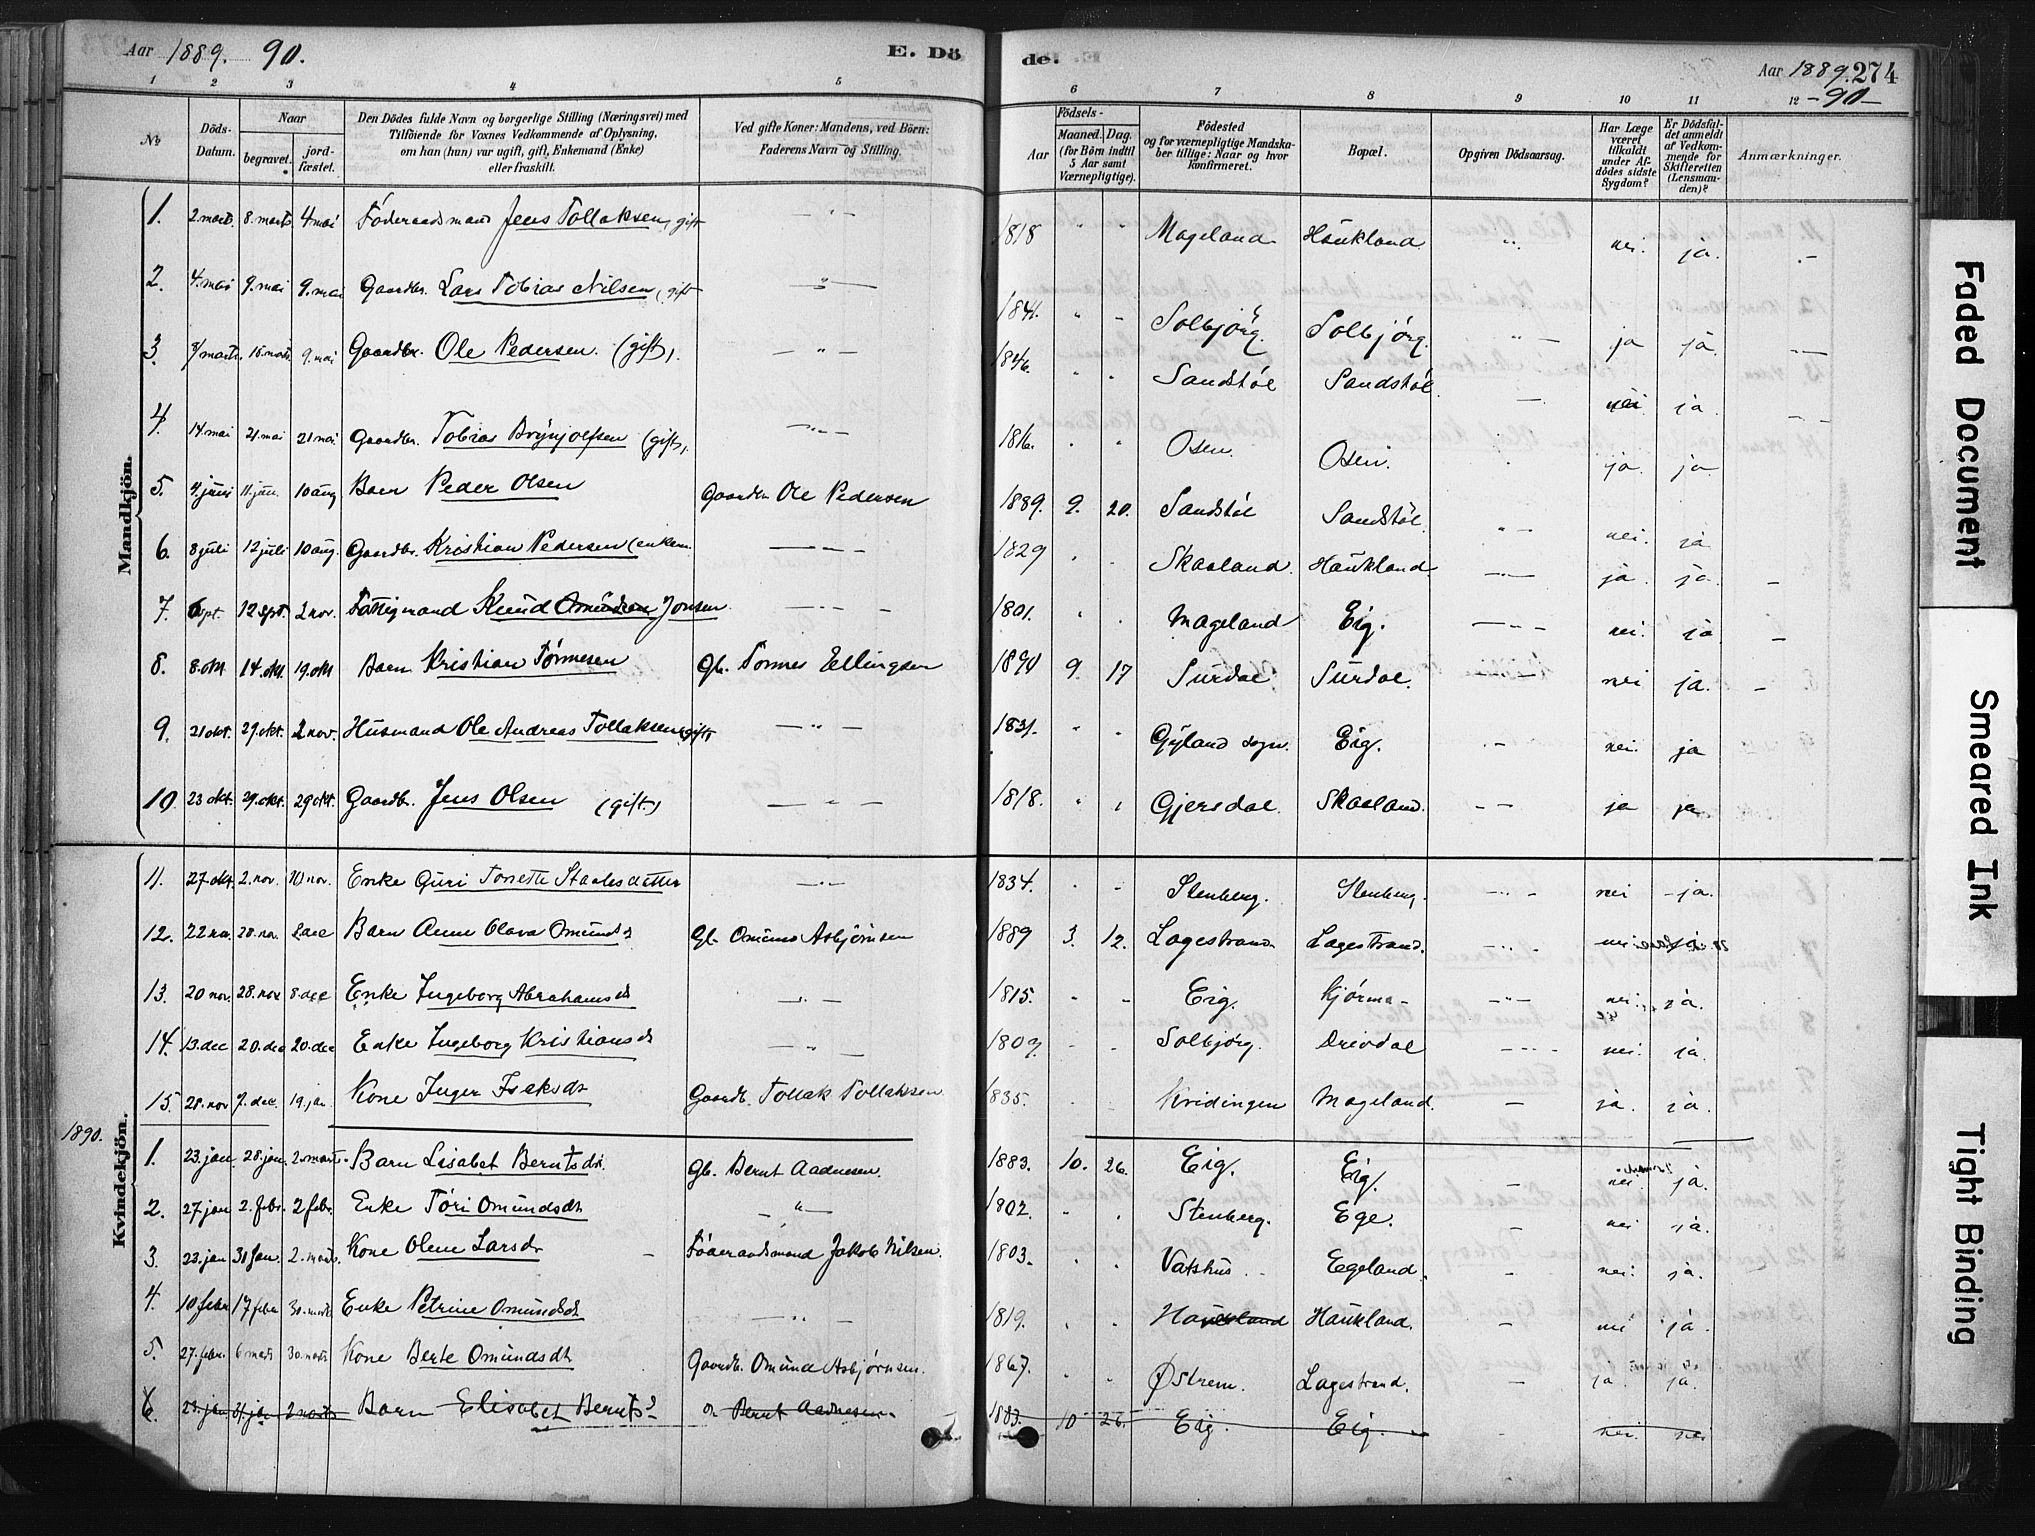 Aar 1889. 90.
E. Dö
de.
Aar 1889. 274
-90-
1 2 3 4 5 6 7 8 9 10 11 12
No
Döds-Datum.
Naar
begravet.
jord-fæstet.
Den Dödes fulde Navn og borgerlige Stilling (Næringsvei) med
Tilföiende for Voxnes Vedkommende af Oplysning,
om han (hun) var ugift, gift, Enkemand (Enke)
eller fraskilt.
Ved gifte Koner: Mandens, ved Börn:
Faderens Navn og Stilling.
Födsels-
Aar
Maaned. Dag.
(for Börn indtil
5 Aar samt
Værnepligtige).
Födested
og for værnepligtige Mandska-
ber tillige: Naar og hvor
konfirmeret.
Bopæl.
Opgiven Dödsaarsag.
Har Læge
været
tilkaldt
under Af-
dödes sidste
Sygdom?
Er Dödsfal-
det anmeldt
af Vedkom-
mende for
Skifteretten
(Lensman-
den)?
Anmærkninger.
Mandkjön.
1. 2. marts. 8. marts 4 mai Föderaadsmand Jens Tollaksen, gift — " — 1818 " " Mageland Haukland " nei. ja.
2. 4. mai 9. mai 9. mai Gaardbr. Lars Tobias Nilsen, (gift — " — 1841. " " Solbjörg. Solbjörg. " ja ja.
3. marts. 15. marts 9. mai Gaardbr. Ole Pedersen. (gift). — " — 1846. " " Sandstöl Sandstöl. — nei ja.
4. 14. mai 21. mai 21 mai Gaardbr. Tobias Brynjolfsen (gift). — " — 1816. " " Osen. Osen. ja. ja
5. 4. juni 11. jun. 10 aug Barn Peder Olsen Gaardbr. Ole Pedersen 1889. 9. 20. Sandstöl Sandstöl. " nei. ja
6. 8 juli 12 juli 10 aug. Gaardbr. Kristian Pedersen (enkem. — " — 1829 " " Skaaland. Haukland. — " — ja. ja. —
7. 6 spt. 12 spt. 2 nov. Fattigmand Knud Omundsen Jonsen. — " — 1801. " " Mageland Eig. — " — nei. ja —
8. 8. okt 14. okt. 19. okt Barn Kristian Tönnesen Gb. Tönnes Ellingsen 1890 9. 17 Surdal Surdal. nei ja. —
9. 21 okt. 27. okt. 2 nov. Husmand Ole Andreas Tollaksen (gift) — " — 1831. " " Gyland sogn. Eig. — nei. ja
10 23 okt. 29. okt. 29 okt. Gaardbr. Jens Olsen (gift) — " — 1818. " " Gjersdal. Skaaland. — ja ja.
Kvindekjön.
11. 27. okt. 2. nov. 10 nov. Enke Guri Tonette Staalesdatter — " — 1834. " " Stenberg. Stenberg. — " — nei -ja.
12. 22 nov. 28. nov. 8 dec Barn Anne Olava Omunds d Gb. Omund Asbjörnsen 1889 3. 12. Lagestrand Lagestrand. — " — nei
13. 20 nov. 28. nov 8. dec Enke Ingeborg Abrahams dt — " — 1815. " " Eig. Kjörma- — " — nei. ja.
14. 13. dec 20. dec 20. dec Enke Ingeborg Kristians dt — " — 1809. " " Solbjörg. Dreivdal — " — nei. ja.
15. 28. nov 7. dec. 19. jan Kone Inger Isaksdt Gaardb. Tollak Tollaksen 1835. " " Kvidingen Mageland. — ja. ja.
1890.
1. 23. jan. 28. jan. 2. marts. Barn Lisabet Berntsdt. Gb. Bernt Aadnesen. 1883. 10. 26. Eig. Eig. — nei. ja.
2. 27. jan 2. febr. 2 febr. Enke Töri Omundsdt — " — 1802. " " Stenberg. Ege. — nei ja.
3. 23. jan 31 jan. 2. marts. Kone Olene Larsdt Föderaadsmand Jakob Nilsen. 1803. " " Vatshus Egeland. — nei. ja.
4. 10 febr 17 febr 30. marts Enke Petrine Omundsdt — " — 1819. " " Haukland Haukland. — nei ja.
5. 27. febr. 6 marts 30. marts Kone Berte Omundsdt Gaardb. Omund Asbjørnsen. 1867. " " Østrem. Lagestrand. — ja. ja.
6. 23. jan 31 jan 2 marts Barn Elisabet Bernts d Bernt Aadnesen. 1883. 10 26. Eig. Eig. — nei. nei
Faded Document
Smeared Ink
Tight Binding